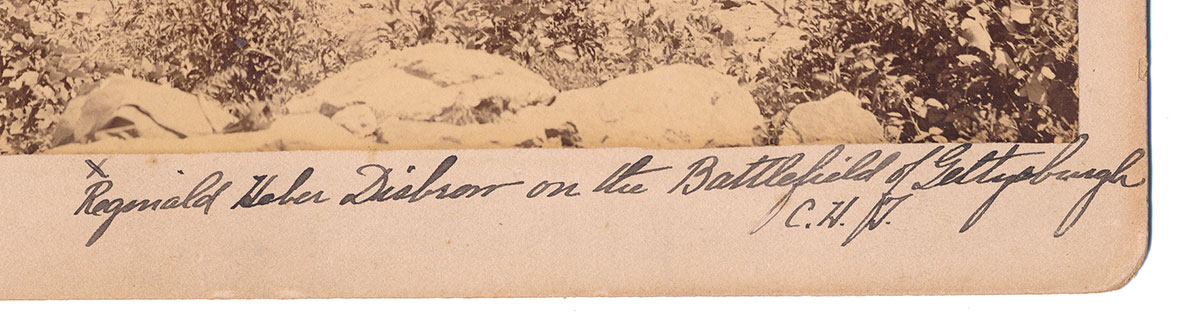 x
Reginald Heber Disbrow on the Battlefield of Gettysburgh
C. H. J.